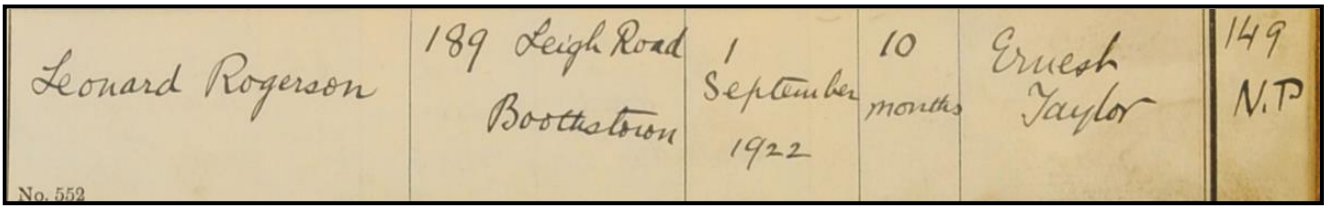 Leonard Rogerson
No. 552
189 Leigh Road
Boothstown
1
September
1922
10
months
Ernest
Taylor
149
N.P